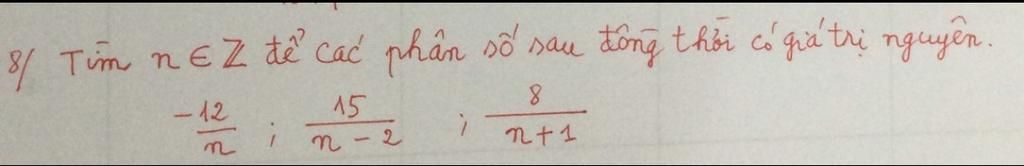 8/ Tìm n ∈ Z để các phân số sau đồng thời có giá trị nguyên.
-12/n ; 15/(n-2) ; 8/(n+1)